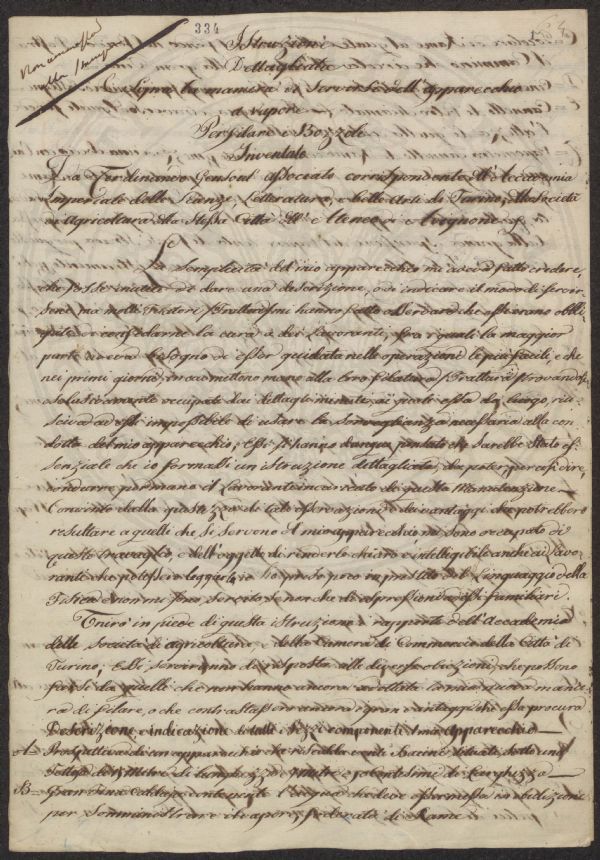 334
Istruzioni
Dettagliate
Sulla maniera di servirsi dell'apparecchio
a vapore
Per filare i Bozzoli
Inventato
Da Ferdinando Gensoul associato corrispondente dell'Accademia
Imperiale delle Scienze, Letteratura, e belle Arti di Torino, della Società
di Agricoltura della stessa Città dell' Ateneo di Avignone &
La Semplicità del mio apparecchio mi aveva fatto credere,
che fosse inutile di dare una descrizione, ed indicare il modo di servir-
sene, ma molti Trattori hanno fatto osservare che essi erano obbli-
gati di confidarne la cura a dei Lavoranti, fra i quali la maggior
parte aveva bisogno di esser guidata nelle operazioni le più facili, e che
nei primi giorni, in cui mettono mano alla loro filatura i Trattori trovandosi
assolutamente occupati dai dettagli minuti, ai quali essa dà luogo, riu-
sciva ad essi impossibile di usare la sorveglianza necessaria alla con-
dotta del mio apparecchio; Essi hanno dunque pensato che sarebbe stato es-
senziale che io formassi un istruzione dettagliata, da poter per così dire,
condurre per mano il Lavorante incaricato di questa Manutenzione
Convinto della giustezza di tale osservazione, e dei vantaggi che potrebbero
resultare a quelli che si servono del mio apparecchio, mi sono occupato di
questo travaglio, e dell'oggetto di renderlo chiaro e intelligibile anche ai lavo-
ranti che potessero leggerlo, io ho preso poco in prestito dal Linguaggio della
Fisica e non mi sono servito se non che di espressioni ad essi familiari.
Unirò in piede di questa istruzione i rapporti dell'Accademia
delle Società di agricoltura, e della Camera di Commercio della Città di
Torino; Essi serviranno di risposta alle diverse obiezioni che possono
farsi da quelli che non hanno ancora adottata la mia nuova manie-
ra di filare, o che contrastassero ancora i gran vantaggi che essa procura
Descrizione e indicazione di tutti i Pezzi componenti il mio Apparecchio
A Prospettiva di un apparecchio che riscalda venti Bacine situate sotto una
Tettoja di Metri di lunghezza e metri e centesimi di Larghezza
B Gran Caldaja contenente l'acqua che deve esser messa in ebulizione
per somministrare il vapore, federata di Rame